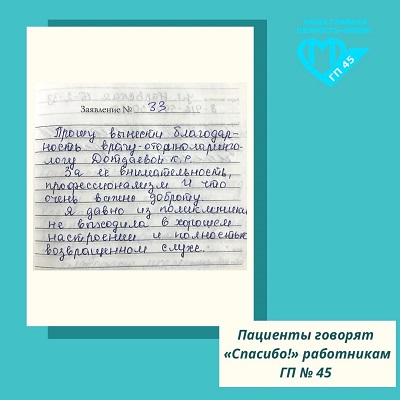 ГП 45
Заявление № 33
Прошу вынести благодар-
ность врачу-оториноларинго-
логу Дотдаевой К.Р.
За ее внимательность,
профессионализм и что
очень важно доброту.
Я давно из поликлиники
не выходила в хорошем
настроении и полностью
возвращенном слухе.
Пациенты говорят
«Спасибо!» работникам
ГП № 45